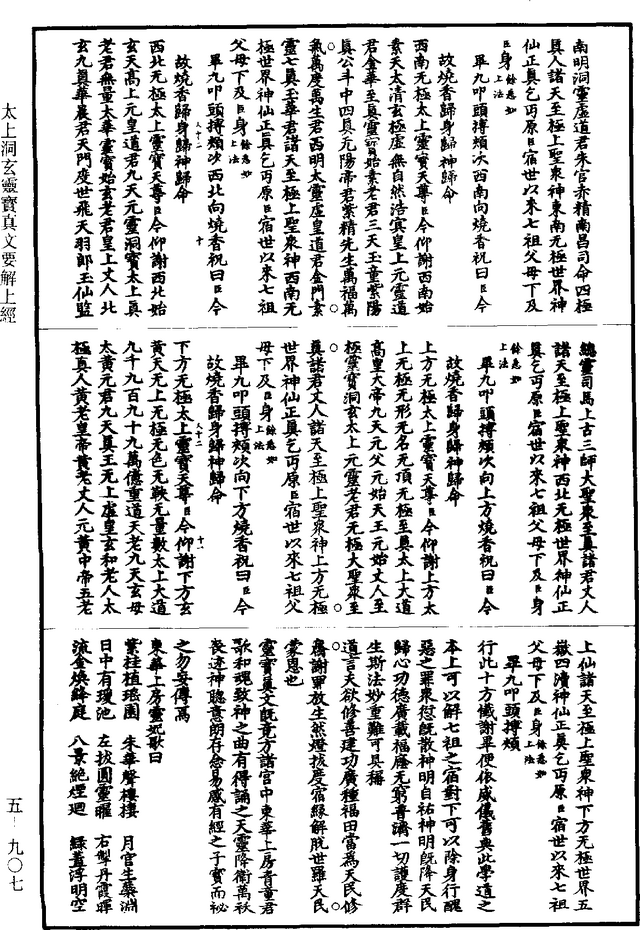 南明洞靈虛道君朱官赤精南昌司命四極
真人諸天至極上聖衆神東南无極世界神
仙正真乞丐原臣宿世以來七祖父母下及
臣身餘悉如上法
畢九叩頭搏頰次西南向燒香祝曰臣今
故燒香歸身歸神歸命
西南无極太上靈寶天尊臣今仰謝西南始
素天太清玄極虛无自然浩寘皇上元靈道
君金華至真靈寶始素老君三天玉童紫陽
真公斗中四真元陽帝君紫精先生萬福萬
氣萬度萬生君西明太靈虛皇道君金門素
靈七真玉華君諸天至極上聖衆神西南无
極世界神仙正真乞丐原臣宿世以來七祖
父母下及臣身餘悉如上法
畢九叩頭搏頰次西北向燒香祝曰臣今
故燒香歸身歸神歸命
西北无極太上靈寶天尊臣今仰謝西北始
玄天高上元皇道君九天元靈洞寶太上真
老君無量太華靈寶始玄老君皇上丈人北
玄九真華晨君天門度世飛天羽郎玉仙監
總靈司馬上古三師大聖衆至真諸君丈人
諸天至極上聖衆神西北无極世界神仙正
真乞丐原臣宿世以來七祖父母下及臣身
餘悉如上法
畢九叩頭搏頰次向上方燒香祝曰臣今
故燒香歸身歸神歸命
上方无極太上靈寶天尊臣今仰謝上方太
上无極无形无名无頂无極至真太上大道
高皇大帝九天元父元始天王元始丈人至
極靈寶洞玄太上元靈老君无極大聖衆至
真諸君丈人諸天至極上聖衆神上方无極
世界神仙正真乞丐原臣宿世以來七祖父
母下及臣身餘悉如上法
畢九叩頭搏頰次向下方燒香祝曰臣今
故燒香歸身歸神歸命
下方无極太上靈寶天尊臣今仰謝下方玄
黃天无上无極无色无鞅无量數太上大道
九千九百九十九萬億重道天老九天玄母
太黃元君九天真王无上虛皇玄和老人太
極真人黃老皇帝黃老丈人元黃中帝五老
上仙諸天至極上聖衆神下方无極世界五
嶽四瀆神仙正真乞丐原臣宿世以來七祖
父母下及臣身餘悉如上法
畢九叩頭搏頰
行此十方懺謝畢便依威儀舊典此學道之
本上可以解七祖之宿對下可以除身行醜
惡之罪衆愆既散神明自祐神明既降天民
歸心功德廣載福慶无窮普濟一切護度群
生斯法妙重難可具稱
道言夫欲修善建功廣種福田當爲天民修
齋謝罪放生然燈拔度宿緣解脫世羅天民
蒙恩也
靈寶真文既竟方諸宮中東華上房青童君
歌和魂致神之曲有得誦之天靈降衛萬祅
喪迹神聰意朗存念易感有經之子寶而祕
之勿妄傳焉
東華上房靈妃歌曰
紫桂植瑤園　朱華聲悽悽　月宮生蘂淵
日中有瓊池　左拔圓靈曜　右掣丹霞暉
流金煥絳庭　八景絶煙迴　綠蓋浮明空
太上洞玄靈寶真文要解上經
五－九〇七